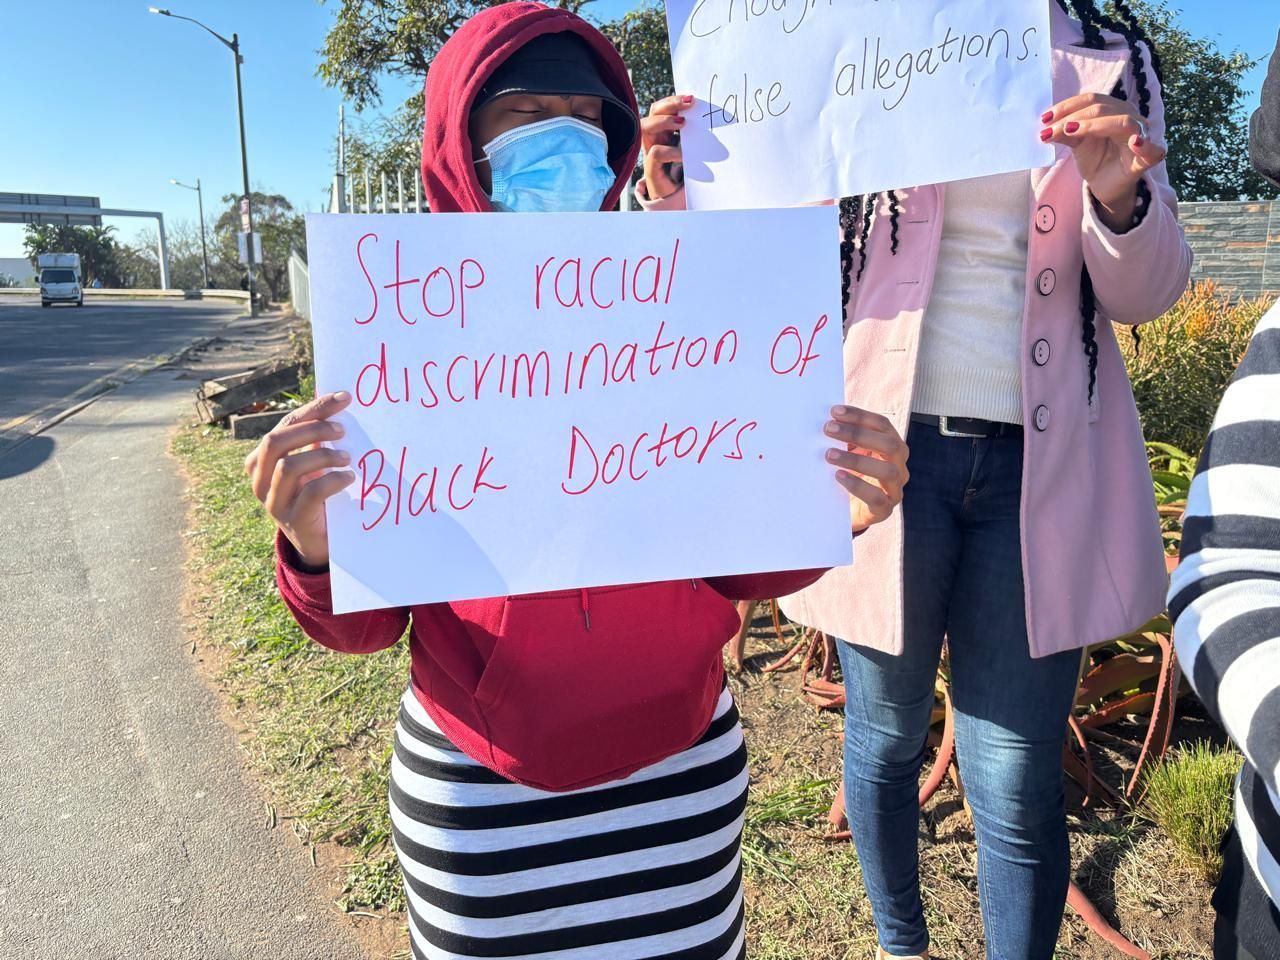 Stop racial
discrimination of
Black Doctors.
false allegations.